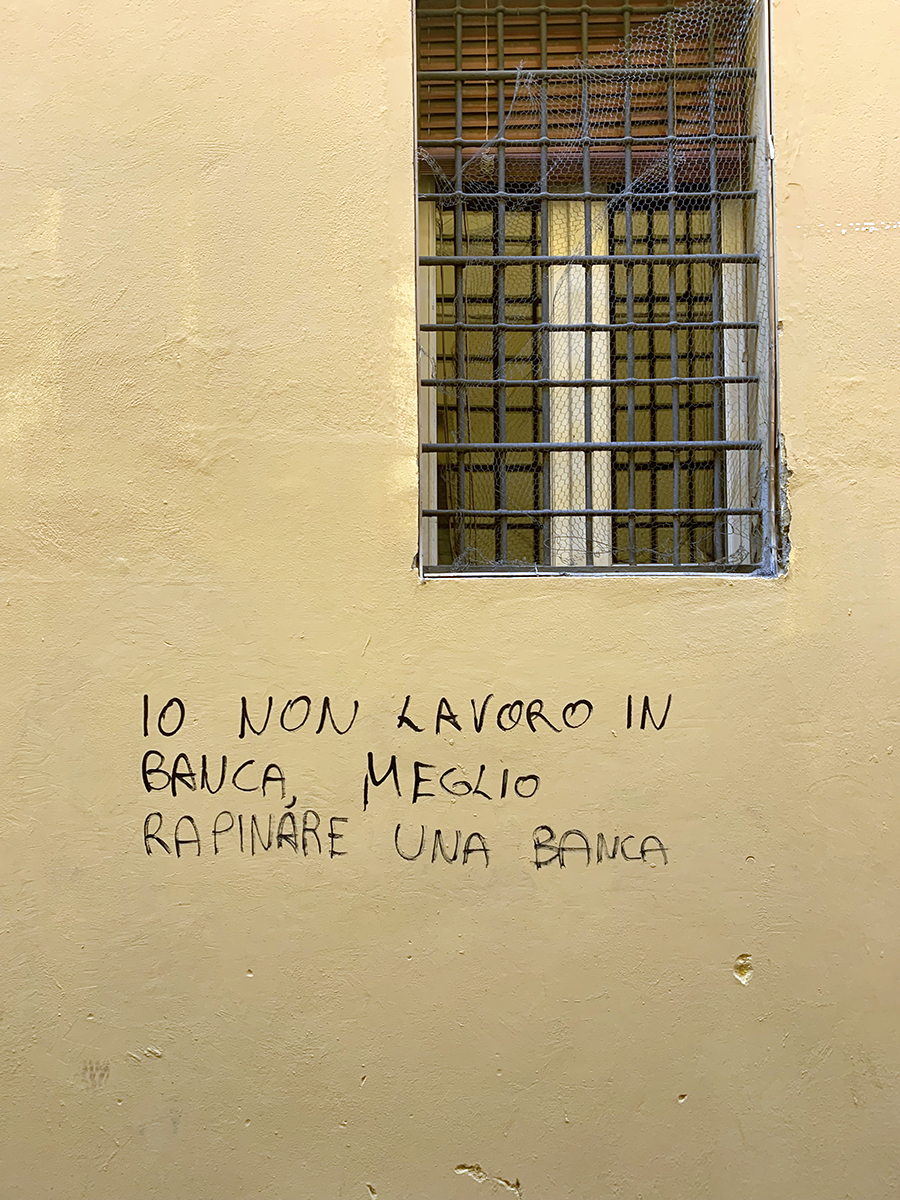 IO NON LAVORO IN
BANCA, MEGLIO
RAPINARE UNA BANCA